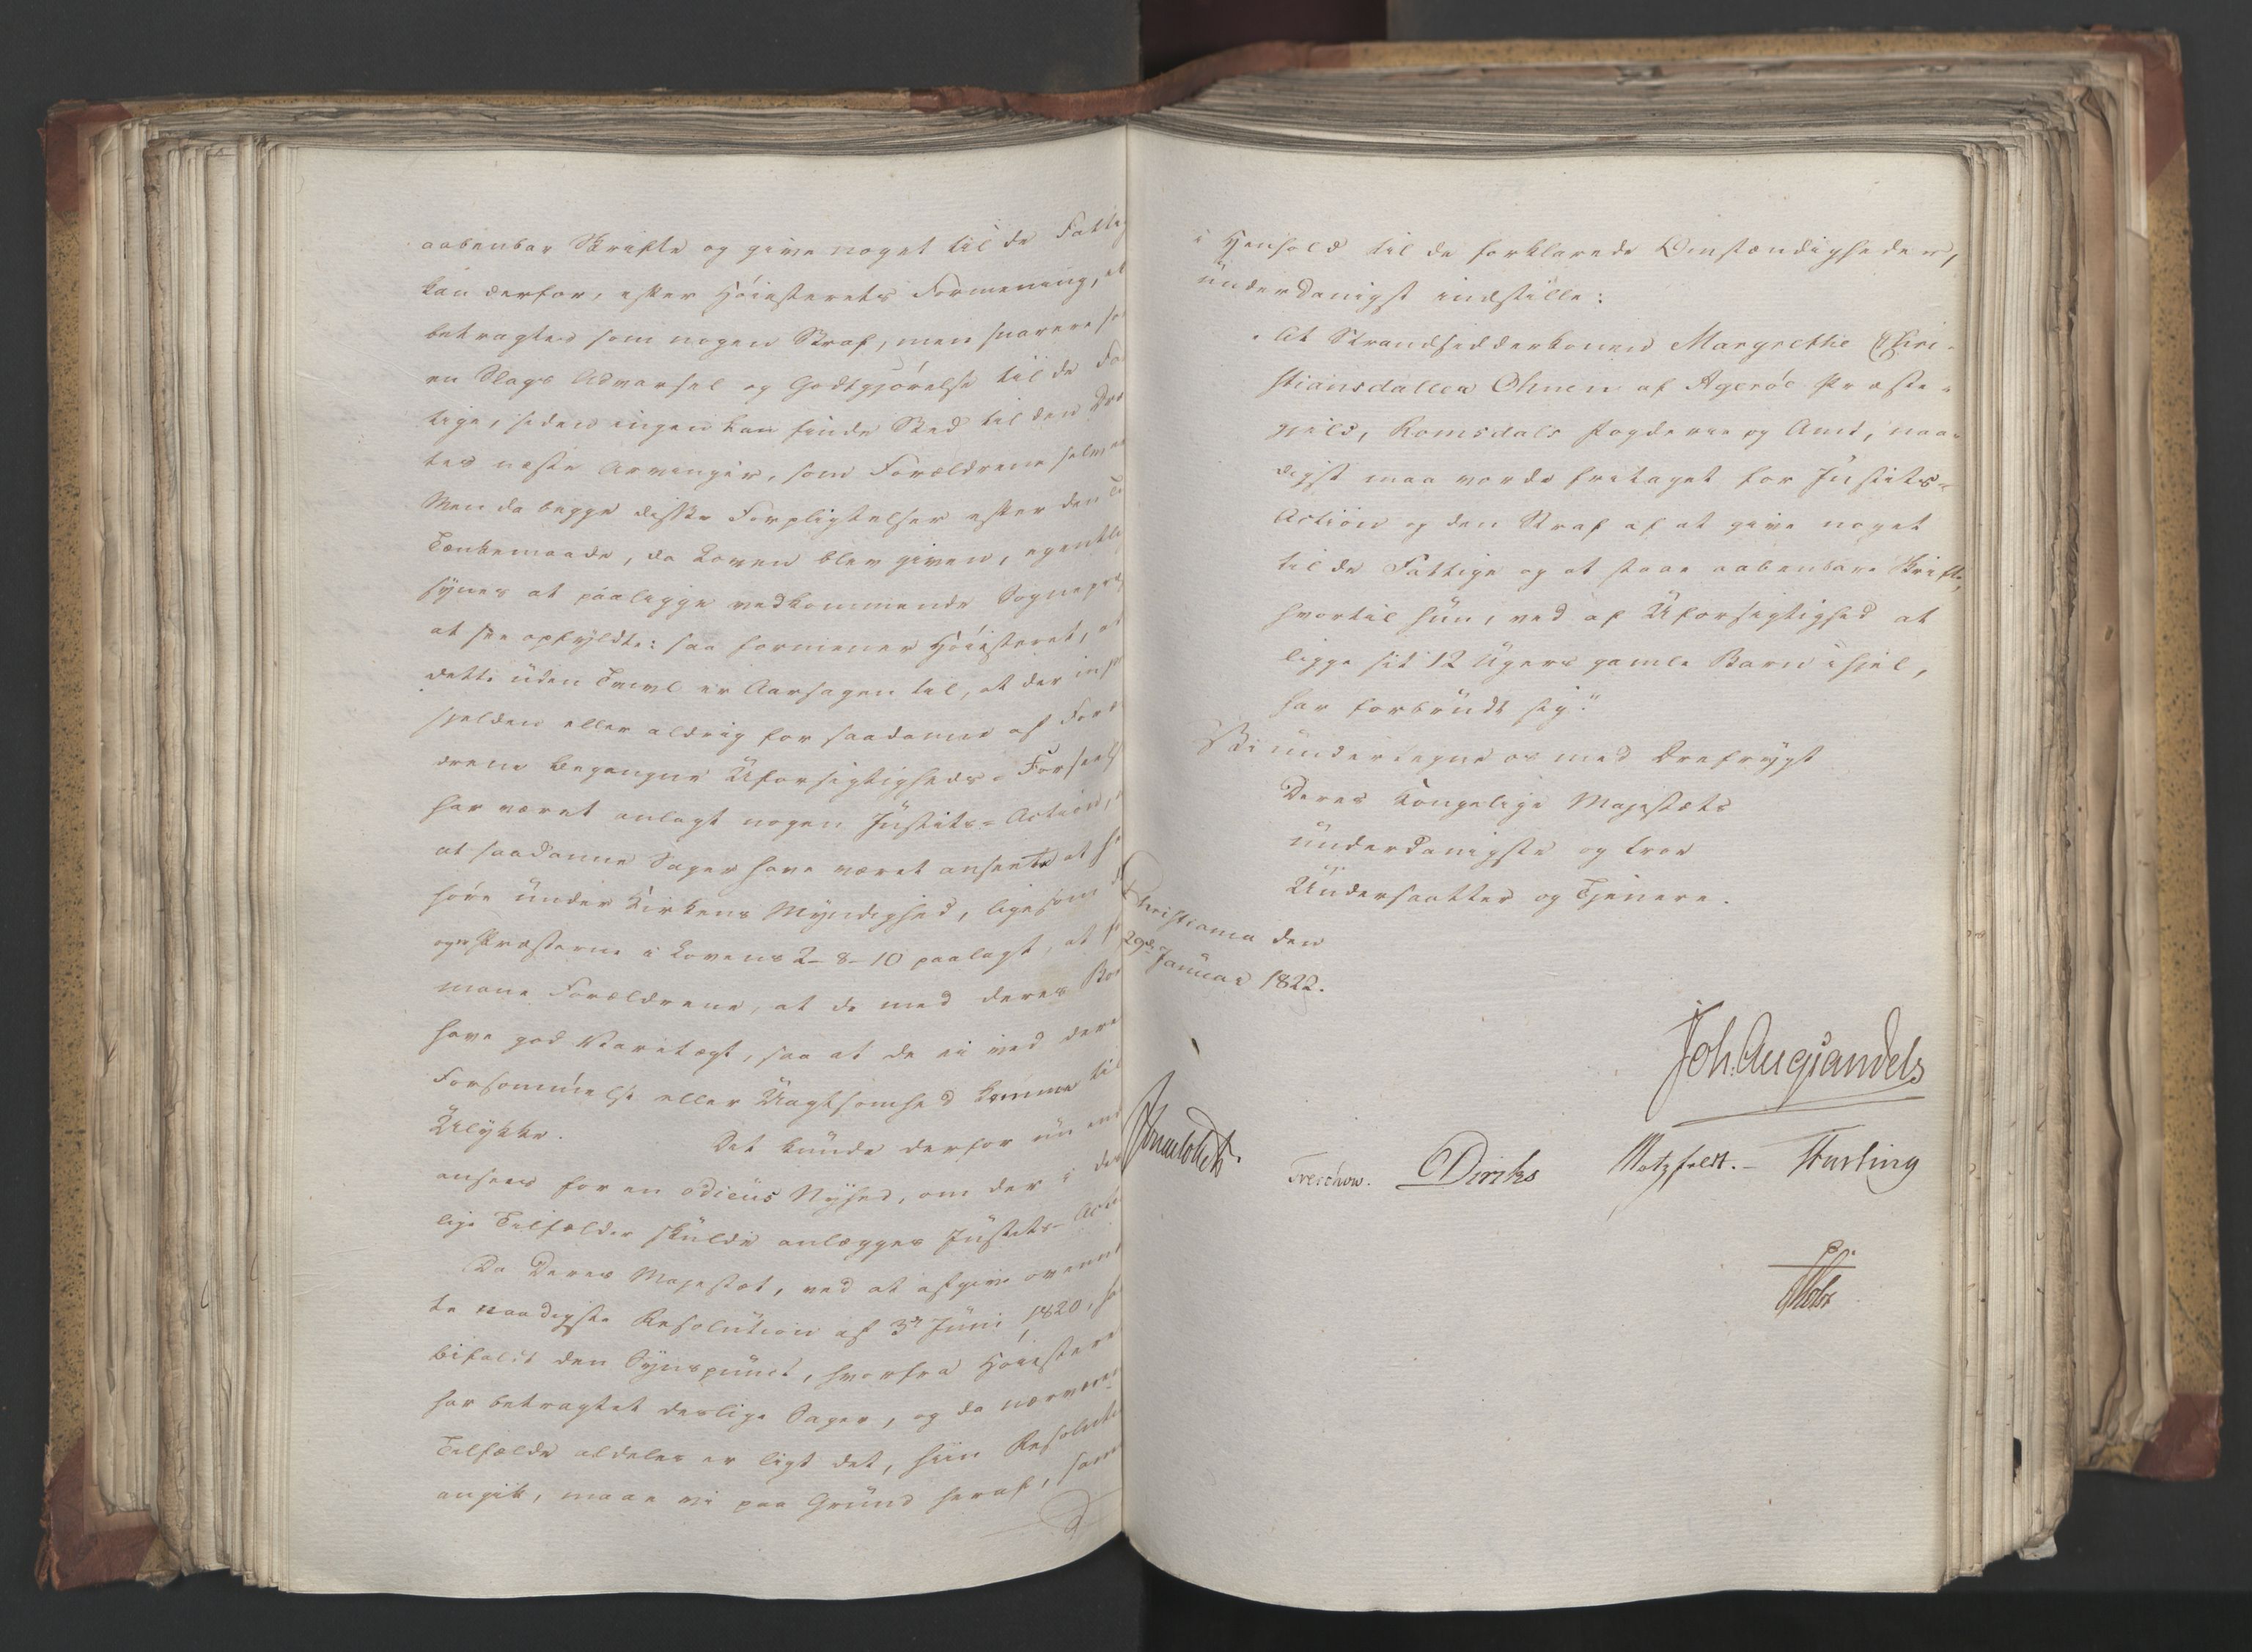 aabenbar Skrifte og give noget til de Fattig
kan derfor, efter Höiesterets Formening, 
betragtes som nogen Straf, men snarere so
en Slags Advarsel og Godtgjörelse til de Fa
tige, siden ingen kan finde Sted til den Dræ
tes neste Arvinger, som Forældrene selv 
Men da begge disse Forpligtelser efter den
Tænkemaade, da Loven blev given, egentlig
synes at paaligge vedkommende Sognepræ
at see opfyldte: saa formener Höiesteret, at
dette uden Tvivl er Aarsagen til, at der
sjelden eller aldrig for saadanne af Foræ
drene begangne Uforsigtigheds-Forseels
har været anlagt nogen Justits-Action,
at saadanne Sager have været ansete at
höre under Kirkens Myndighed, ligesom
og Præsterne i Lovens 2-8-10 paalagt, at
mane Forældrene, at de med deres Bør
have god Varetægt, saa at de ei ved dere
Forsömmelse eller Uagtsomhed komme til
Ulykke. Det kunde derfor nu
ansees for en odieus Nyhed, om der i des
lige Tilfælde skulde anlægges Justits-Acti
Da Deres Majestæt, ved at afgive ovenn
te naadigste Resolution af 3die Juni 1820, ha
bifaldt den Synspunct, hvorfra Höiestere
har betragtet deslige Sager, og da nærværen
Tilfælde aldeles er ligt det, hiin Resoluti
angik, maae vi paa Grund heraf, sam
i Henhold til de forklarede Omstændigheder,
underdanigst indstille:
"At Strandsidderkonen Margrethe Chri-
stiansdatter Ohnen af Ageröe Præste-
gjeld, Romsdals Fogderie og Amt, naa-
digst maa vorde fritaget for Justits-
Action og den Straf af at give noget
til de Fattige og at staae aabenbare Skrifte,
hvortil hun, ved af Uforsigtighed at
ligge sit 12 Ugers gamle Barn ihjel,
har forbrudt sig."
Vi undertegne os med Ærefrygt
Deres Kongelige Majestæts
underdanigste og troe
Undersaatter og Tjenere.
Christiania den
29de Januar 1822.
Joh. Aug Sandels
Sommerhielm.
Treschow. CDiriks Motzfeldt. - Fasting
Holst